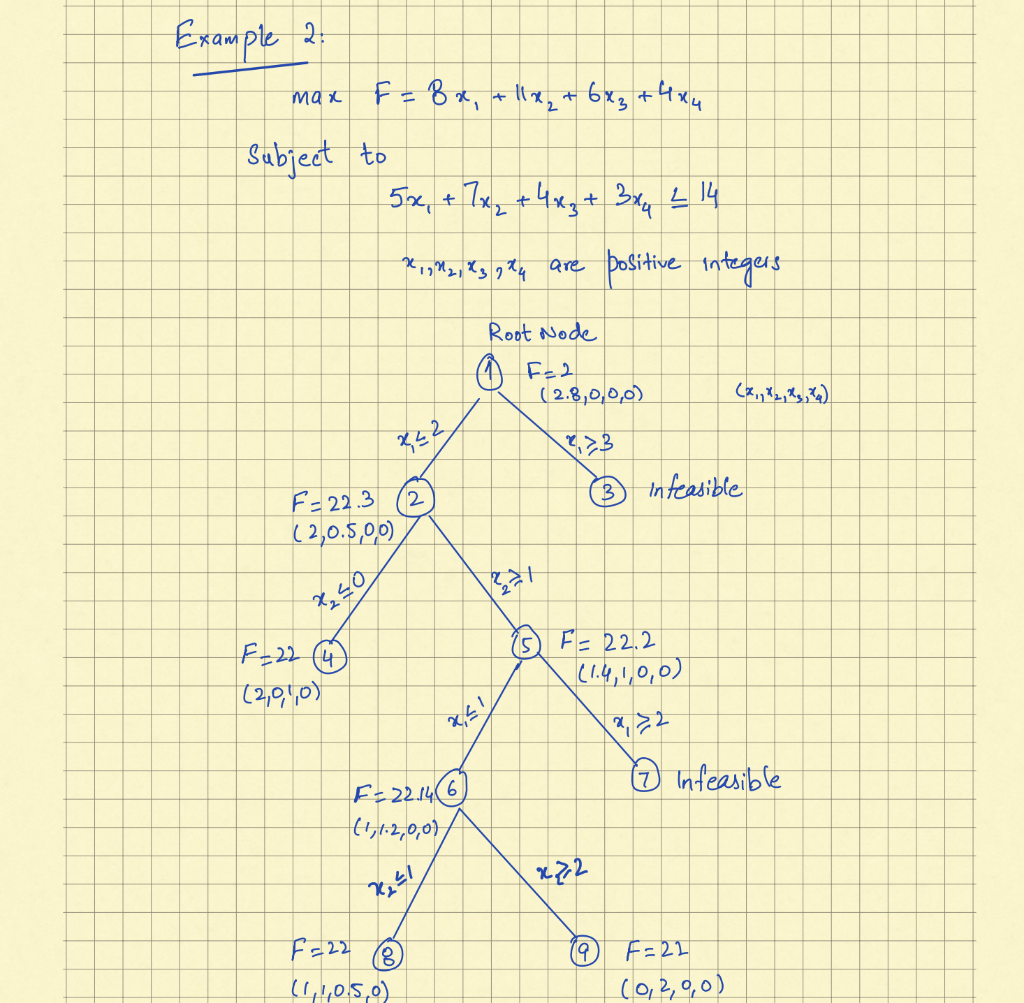 Example 2:
max F = 8x₁ + 11x₂ + 6x₃ + 4x₄
Subject to
5x₁ + 7x₂ + 4x₃ + 3x₄ ≤ 14
x₁, x₂, x₃, x₄ are positive integers
Root Node
1 F = 2
(2.8, 0, 0, 0) (x₁, x₂, x₃, x₄)
x₁ ≤ 2 x₁ ≥ 3
F = 22.3 2 3 Infeasible
(2, 0.5, 0, 0)
x₂ ≤ 0 x₂ ≥ 1
F = 22 4 5 F = 22.2
(2, 0, 1, 0) (1.4, 1, 0, 0)
x₁ ≤ 1 x₁ ≥ 2
F = 22.14 6 7 Infeasible
(1, 1.2, 0, 0)
x₂ ≤ 1 x₂ ≥ 2
F = 22 8 9 F = 22
(1, 1, 0.5, 0) (0, 2, 0, 0)